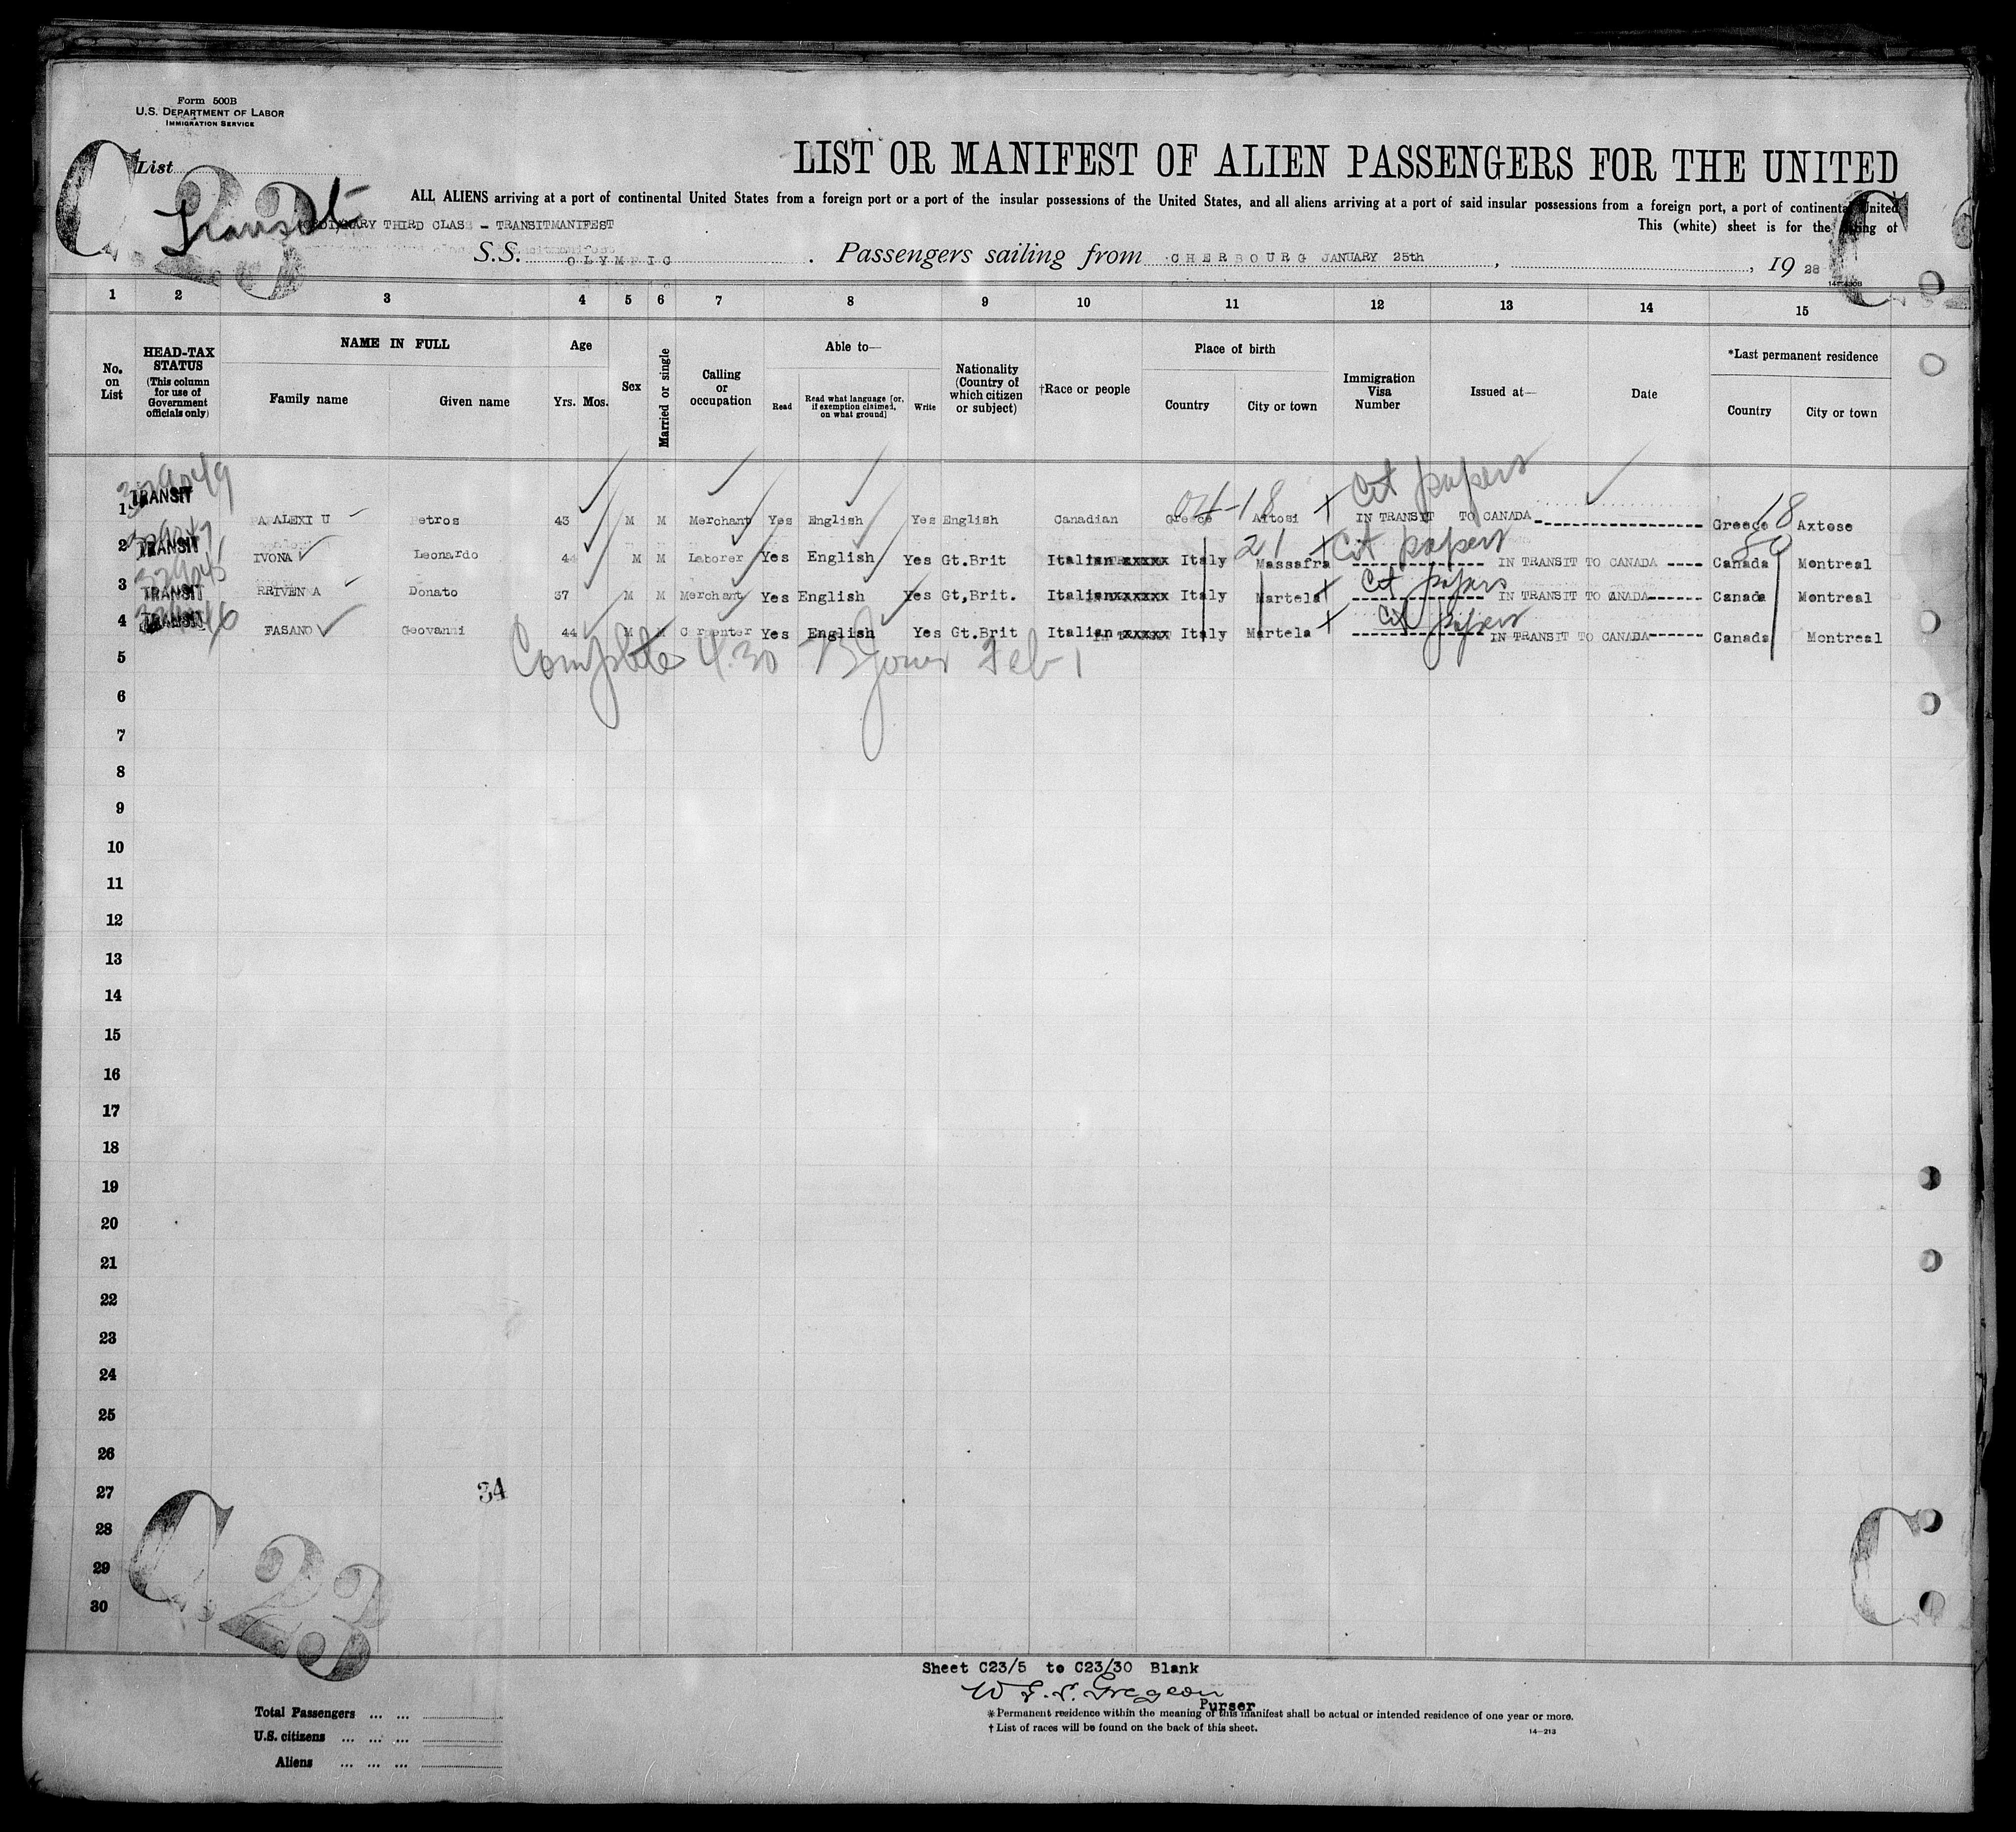 Form 500B
U.S. DEPARTMENT OF LABOR
IMMIGRATION SERVICE
List
C 23
Transit
LIST OR MANIFEST OF ALIEN PASSENGERS FOR THE UNITED
ALL ALIENS arriving at a port of continental United States from a foreign port or a port of the insular possessions of the United States, and all aliens arriving at a port of said insular possessions from a foreign port, a port of continental United
ORDINARY THIRD CLASS - TRANSITMANIFEST
This (white) sheet is for the listing of
S.S. OLYMPIC . Passengers sailing from CHERBOURG JANUARY 25th , , 19 28
C
1 2 3 4 5 6 7 8 9 10 11 12 13 14 15
No. on List
HEAD-TAX STATUS (This column for use of Government officials only)
NAME IN FULL
Family name Given name
Age
Yrs. Mos.
Sex
Married or single
Calling or occupation
Able to—
Read Read what language [or, if exemption claimed, on what ground] Write
Nationality (Country of which citizen or subject)
†Race or people
Place of birth
Country City or town
Immigration Visa Number
Issued at—
Date
*Last permanent residence
Country City or town
329049 04-18 Cit papers 18
1 TRANSIT PAPALEXI U Petros 43 M M Merchant Yes English Yes English Canadian Greece Aitosi IN TRANSIT TO CANADA Greece Axtose
21 Cit papers
2 TRANSIT IVONA Leonardo 44 M M Laborer Yes English Yes Gt.Brit Italian xxxxx Italy Massafra IN TRANSIT TO CANADA Canada Montreal
Cit papers
3 TRANSIT RRIVEN A Donato 37 M M Merchant Yes English Yes Gt,Brit. Italianxxxxxx Italy Martela IN TRANSIT TO CANADA Canada Montreal
Cit papers
4 TRANSIT FASANO Geovanni 44 M M C rpenter Yes English Yes Gt.Brit Italian xxxxx Italy Martela IN TRANSIT TO CANADA Canada Montreal
Complete 4.30 Feb 1
5
6
7
8
9
10
11
12
13
14
15
16
17
18
19
20
21
22
23
24
25
26
27
34
28
29
30
C 23
C
Sheet C23/5 to C23/30 Blank
Purser
Total Passengers ... ...
*Permanent residence within the meaning of this manifest shall be actual or intended residence of one year or more.
†List of races will be found on the back of this sheet.
14—213
U.S. citizens ... ... ...
Aliens ... ... ...